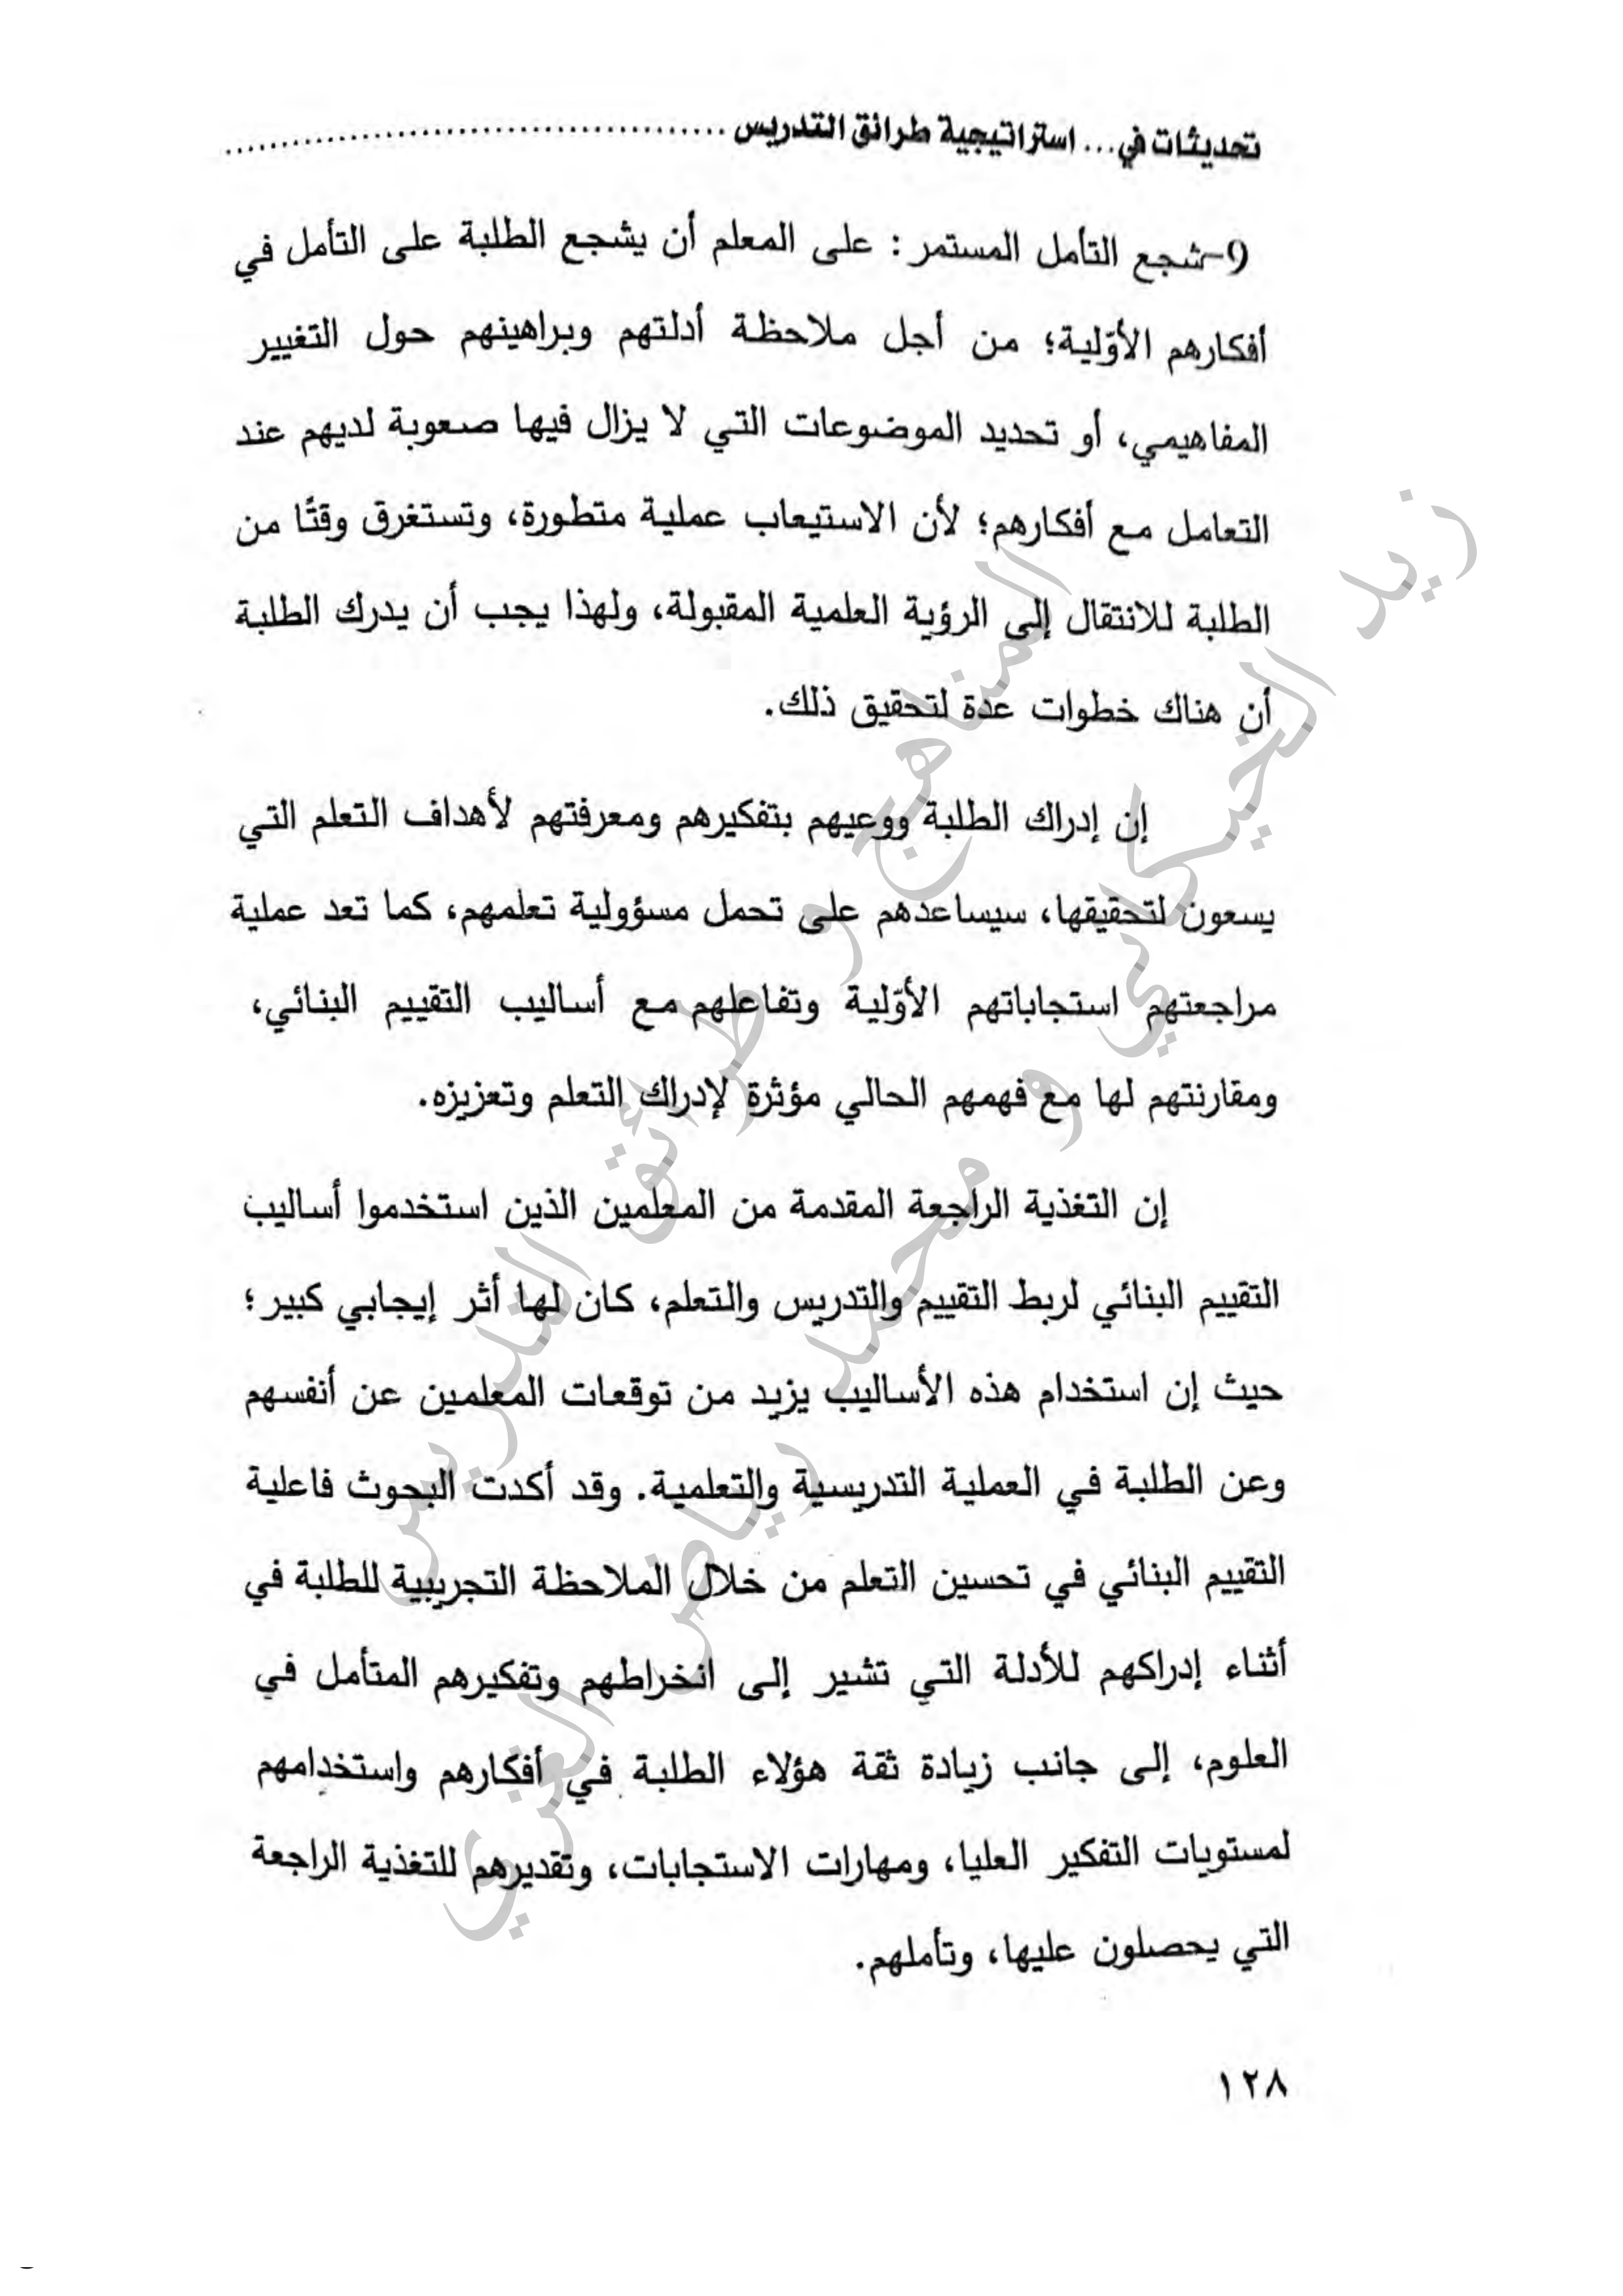 تحديثات في... استراتيجية طرائق التدريس ......................................
9-شجع التأمل المستمر: على المعلم أن يشجع الطلبة على التأمل في
أفكارهم الأوّلية؛ من أجل ملاحظة أدلتهم وبراهينهم حول التغيير
المفاهيمي، أو تحديد الموضوعات التي لا يزال فيها صعوبة لديهم عند
التعامل مع أفكارهم؛ لأن الاستيعاب عملية متطورة، وتستغرق وقتًا من
الطلبة للانتقال إلى الرؤية العلمية المقبولة، ولهذا يجب أن يدرك الطلبة
أن هناك خطوات عدة لتحقيق ذلك.
إن إدراك الطلبة ووعيهم بتفكيرهم ومعرفتهم لأهداف التعلم التي
يسعون لتحقيقها، سيساعدهم على تحمل مسؤولية تعلمهم، كما تعد عملية
مراجعتهم استجاباتهم الأوّلية وتفاعلهم مع أساليب التقييم البنائي،
ومقارنتهم لها مع فهمهم الحالي مؤثرة لإدراك التعلم وتعزيزه.
إن التغذية الراجعة المقدمة من المعلمين الذين استخدموا أساليب
التقييم البنائي لربط التقييم والتدريس والتعلم، كان لها أثر إيجابي كبير؛
حيث إن استخدام هذه الأساليب يزيد من توقعات المعلمين عن أنفسهم
وعن الطلبة في العملية التدريسية والتعلمية. وقد أكدت البحوث فاعلية
التقييم البنائي في تحسين التعلم من خلال الملاحظة التجريبية للطلبة في
أثناء إدراكهم للأدلة التي تشير إلى انخراطهم وتفكيرهم المتأمل في
العلوم، إلى جانب زيادة ثقة هؤلاء الطلبة في أفكارهم واستخدامهم
لمستويات التفكير العليا، ومهارات الاستجابات، وتقديرهم للتغذية الراجعة
التي يحصلون عليها، وتأملهم.
١٢٨
المناهج و طرائق التدريس
زيد الخيكاني و محمد رياض الغزي